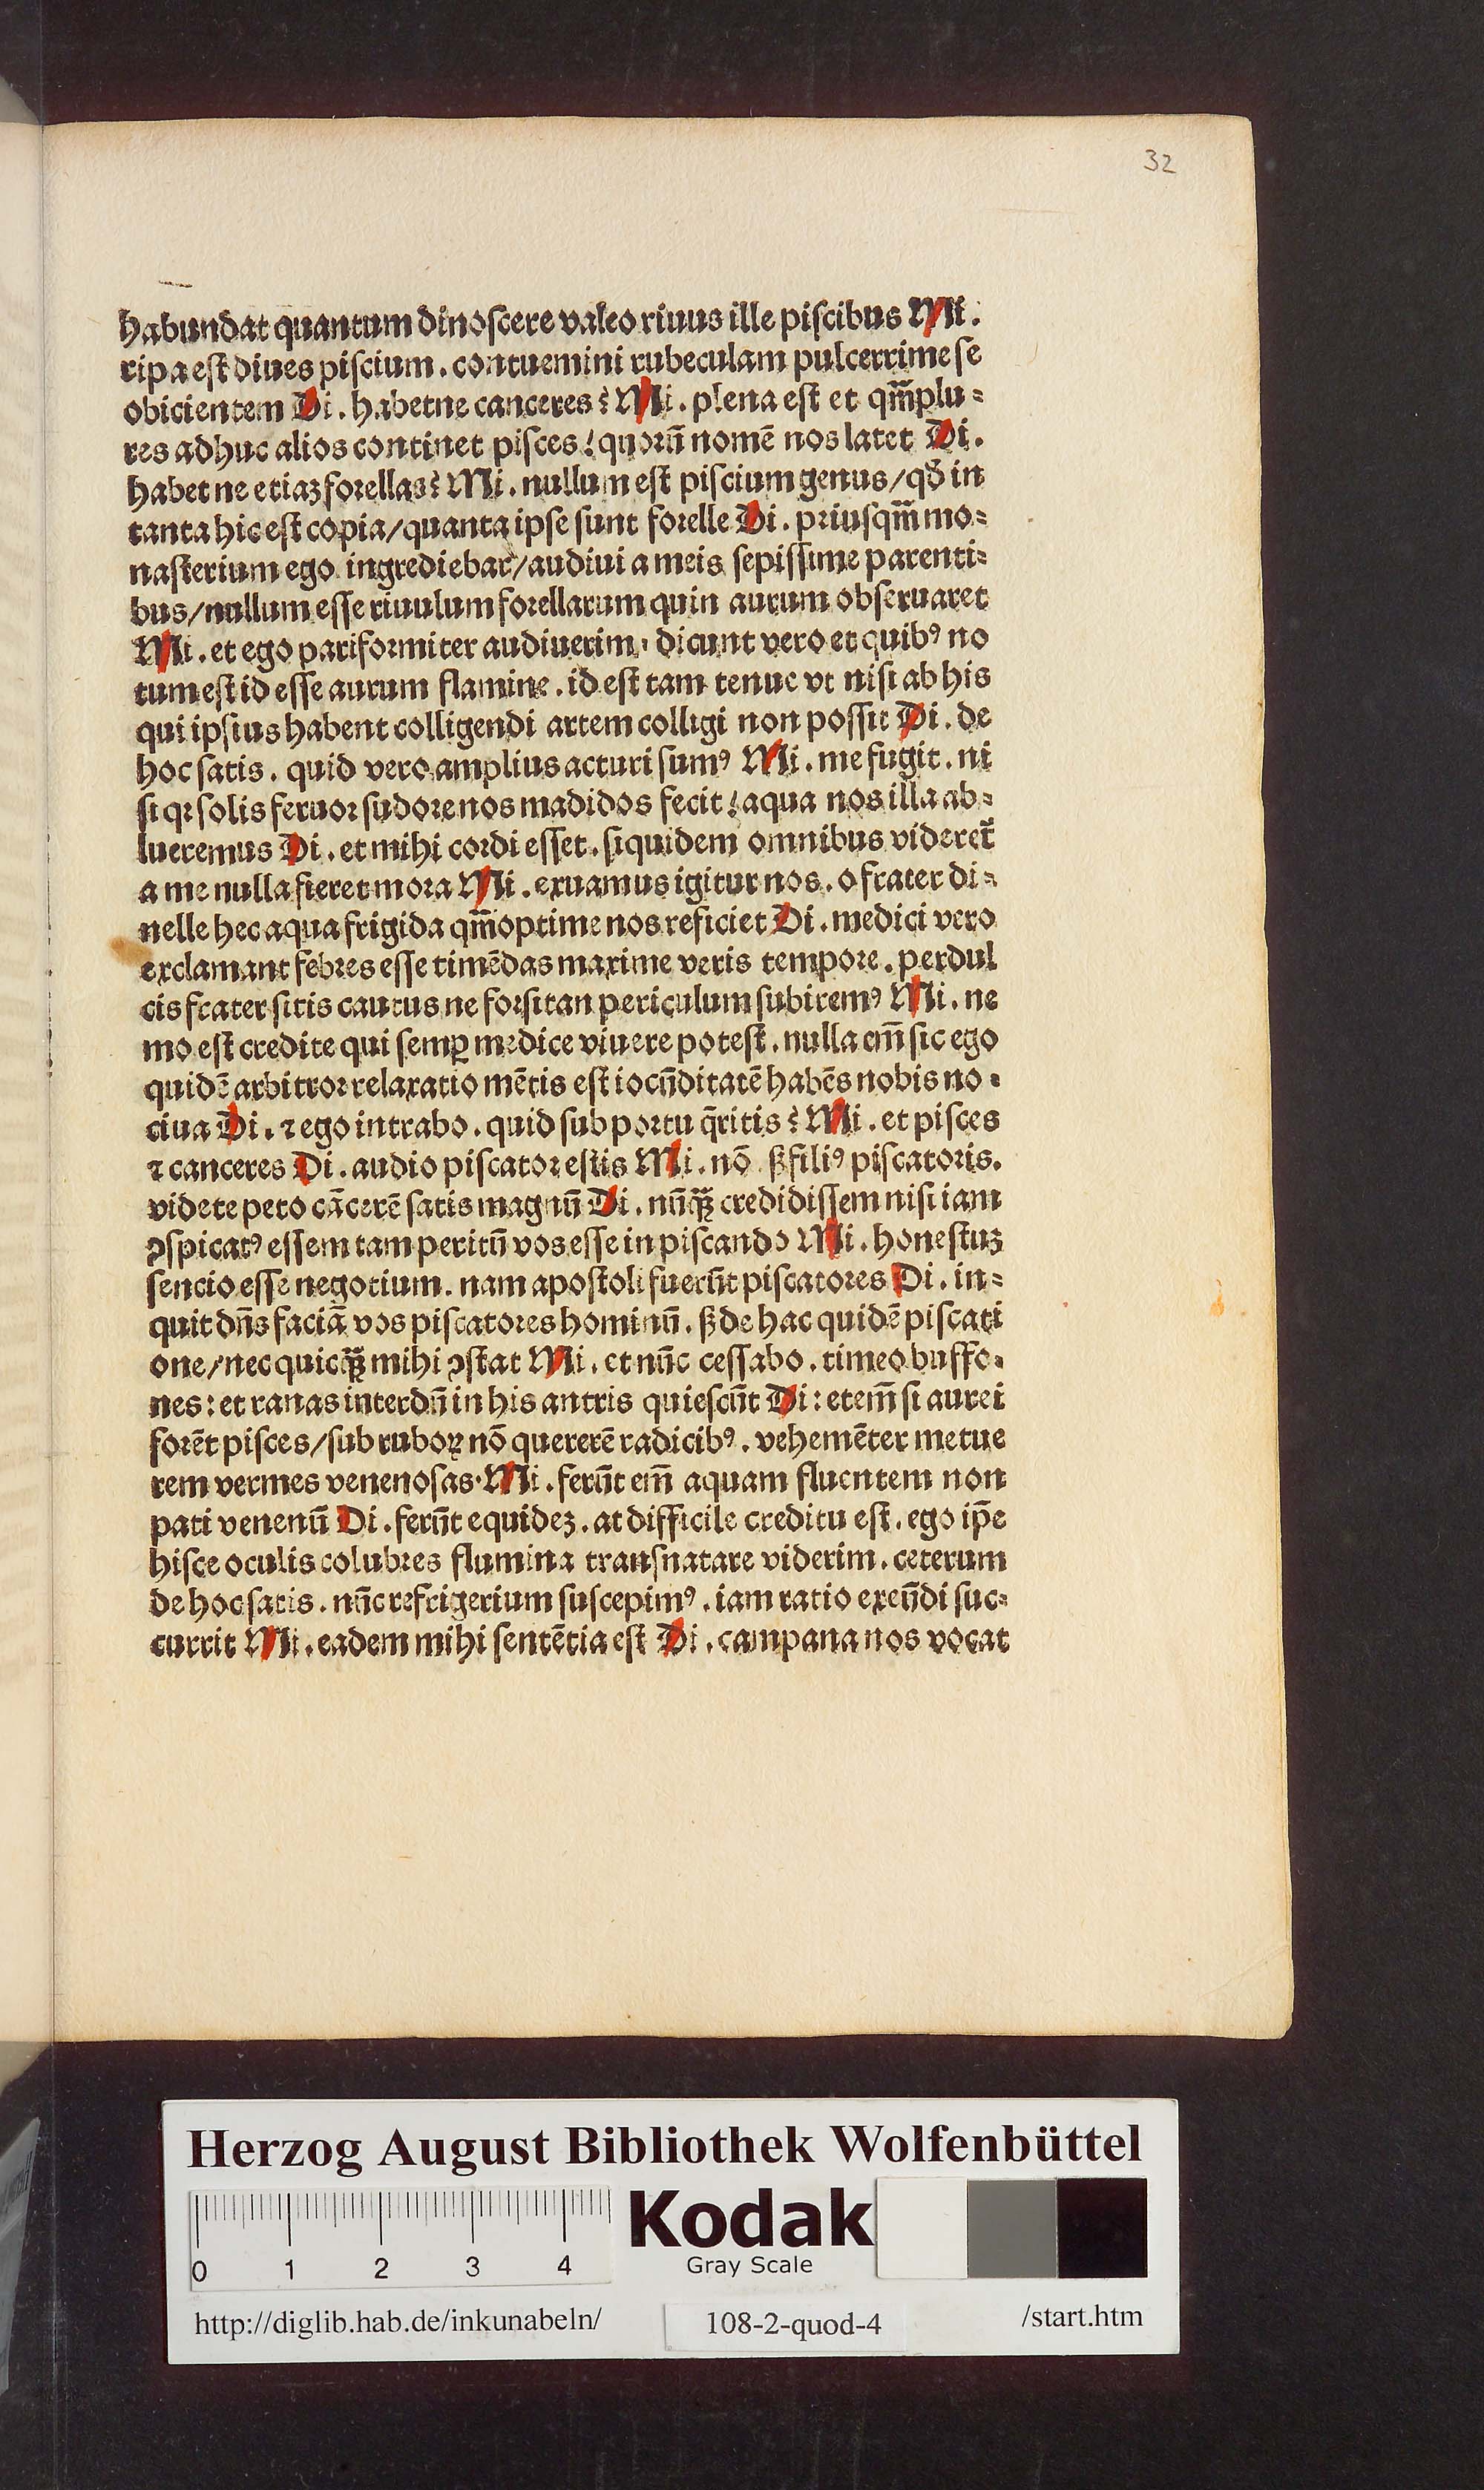 32
habundat quantum dinoscere valeo riuus ille piscibus Mi.
ripa est diues piscium. contuemini rubeculam pulcerrime se
obicientem Di. habetne canceres? Mi. plena est et qm̄plu-
res adhuc alios continet pisces/ quorū nomē nos latet Di.
habet ne etiaz forellas? Mi. nullum est piscium genus/ qđ in
tanta hic est copia/ quanta ipse sunt forelle Di. priusqm̄ mo-
nasterium ego ingrediebar/ audiui a meis sepissime parenti-
bus/ nullum esse riuulum forellarum quin aurum obseruaret
Mi. et ego pariformiter audiuerim. dicunt vero et quibꝰ no
tum est id esse aurum flamine. id est tam tenue vt nisi ab his
qui ipsius habent colligendi artem colligi non possit Di. de
hoc satis. quid vero amplius acturi sumꝰ Mi. me fugit. ni
si qꝛ solis feruor sudore nos madidos fecit/ aqua nos illa ab-
lueremus Di. et mihi cordi esset. siquidem omnibus videret̄
a me nulla fieret mora Mi. exuamus igitur nos. o frater di-
nelle hec aqua frigida qm̄optime nos reficiet Di. medici vero
exclamant febres esse timēdas maxime veris tempore. perdul
cis frater sitis cautus ne forsitan periculum subiremꝰ Mi. ne
mo est credite qui semꝑ medice viuere potest. nulla em̄ sic ego
quidē arbitror relaxatio mētis est iocūditatē habēs nobis no-
ciua Di. ⁊ ego intrabo. quid sub portu q̄ritis? Mi. et pisces
⁊ canceres Di. audio piscator estis Mi. nō ß filiꝰ piscatoris.
videte peto cācerē satis magnū Di. nūq̄ꝫ credidissem nisi iam
ꝯspicatꝰ essem tam peritū vos esse in piscando Mi. honestuz
sencio esse negotium. nam apostoli fuerūt piscatores Di. in-
quit dn̄s faciā vos piscatores hominū. ß de hac quidē piscati
one/ nec quicq̄ꝫ mihi ꝯstat Mi. et nūc cessabo. timeo buffo-
nes: et ranas interdū in his antris quiescūt Di: etem̄ si aurei
forēt pisces/ sub ruboꝝ nō quererē radicibꝰ. vehemēter metue
rem vermes venenosas. Mi. ferūt em̄ aquam fluentem non
pati venenū Di. ferūt equidez. at difficile creditu est. ego ip̄e
hisce oculis colubres flumina transnatare viderim. ceterum
de hoc satis. nūc refrigerium suscepimꝰ. iam ratio exeūdi suc-
currit Mi. eadem mihi sentētia est Di. campana nos vocat
Herzog August Bibliothek Wolfenbüttel
0 1 2 3 4
Kodak
Gray Scale
http://diglib.hab.de/inkunabeln/ 108-2-quod-4 /start.htm